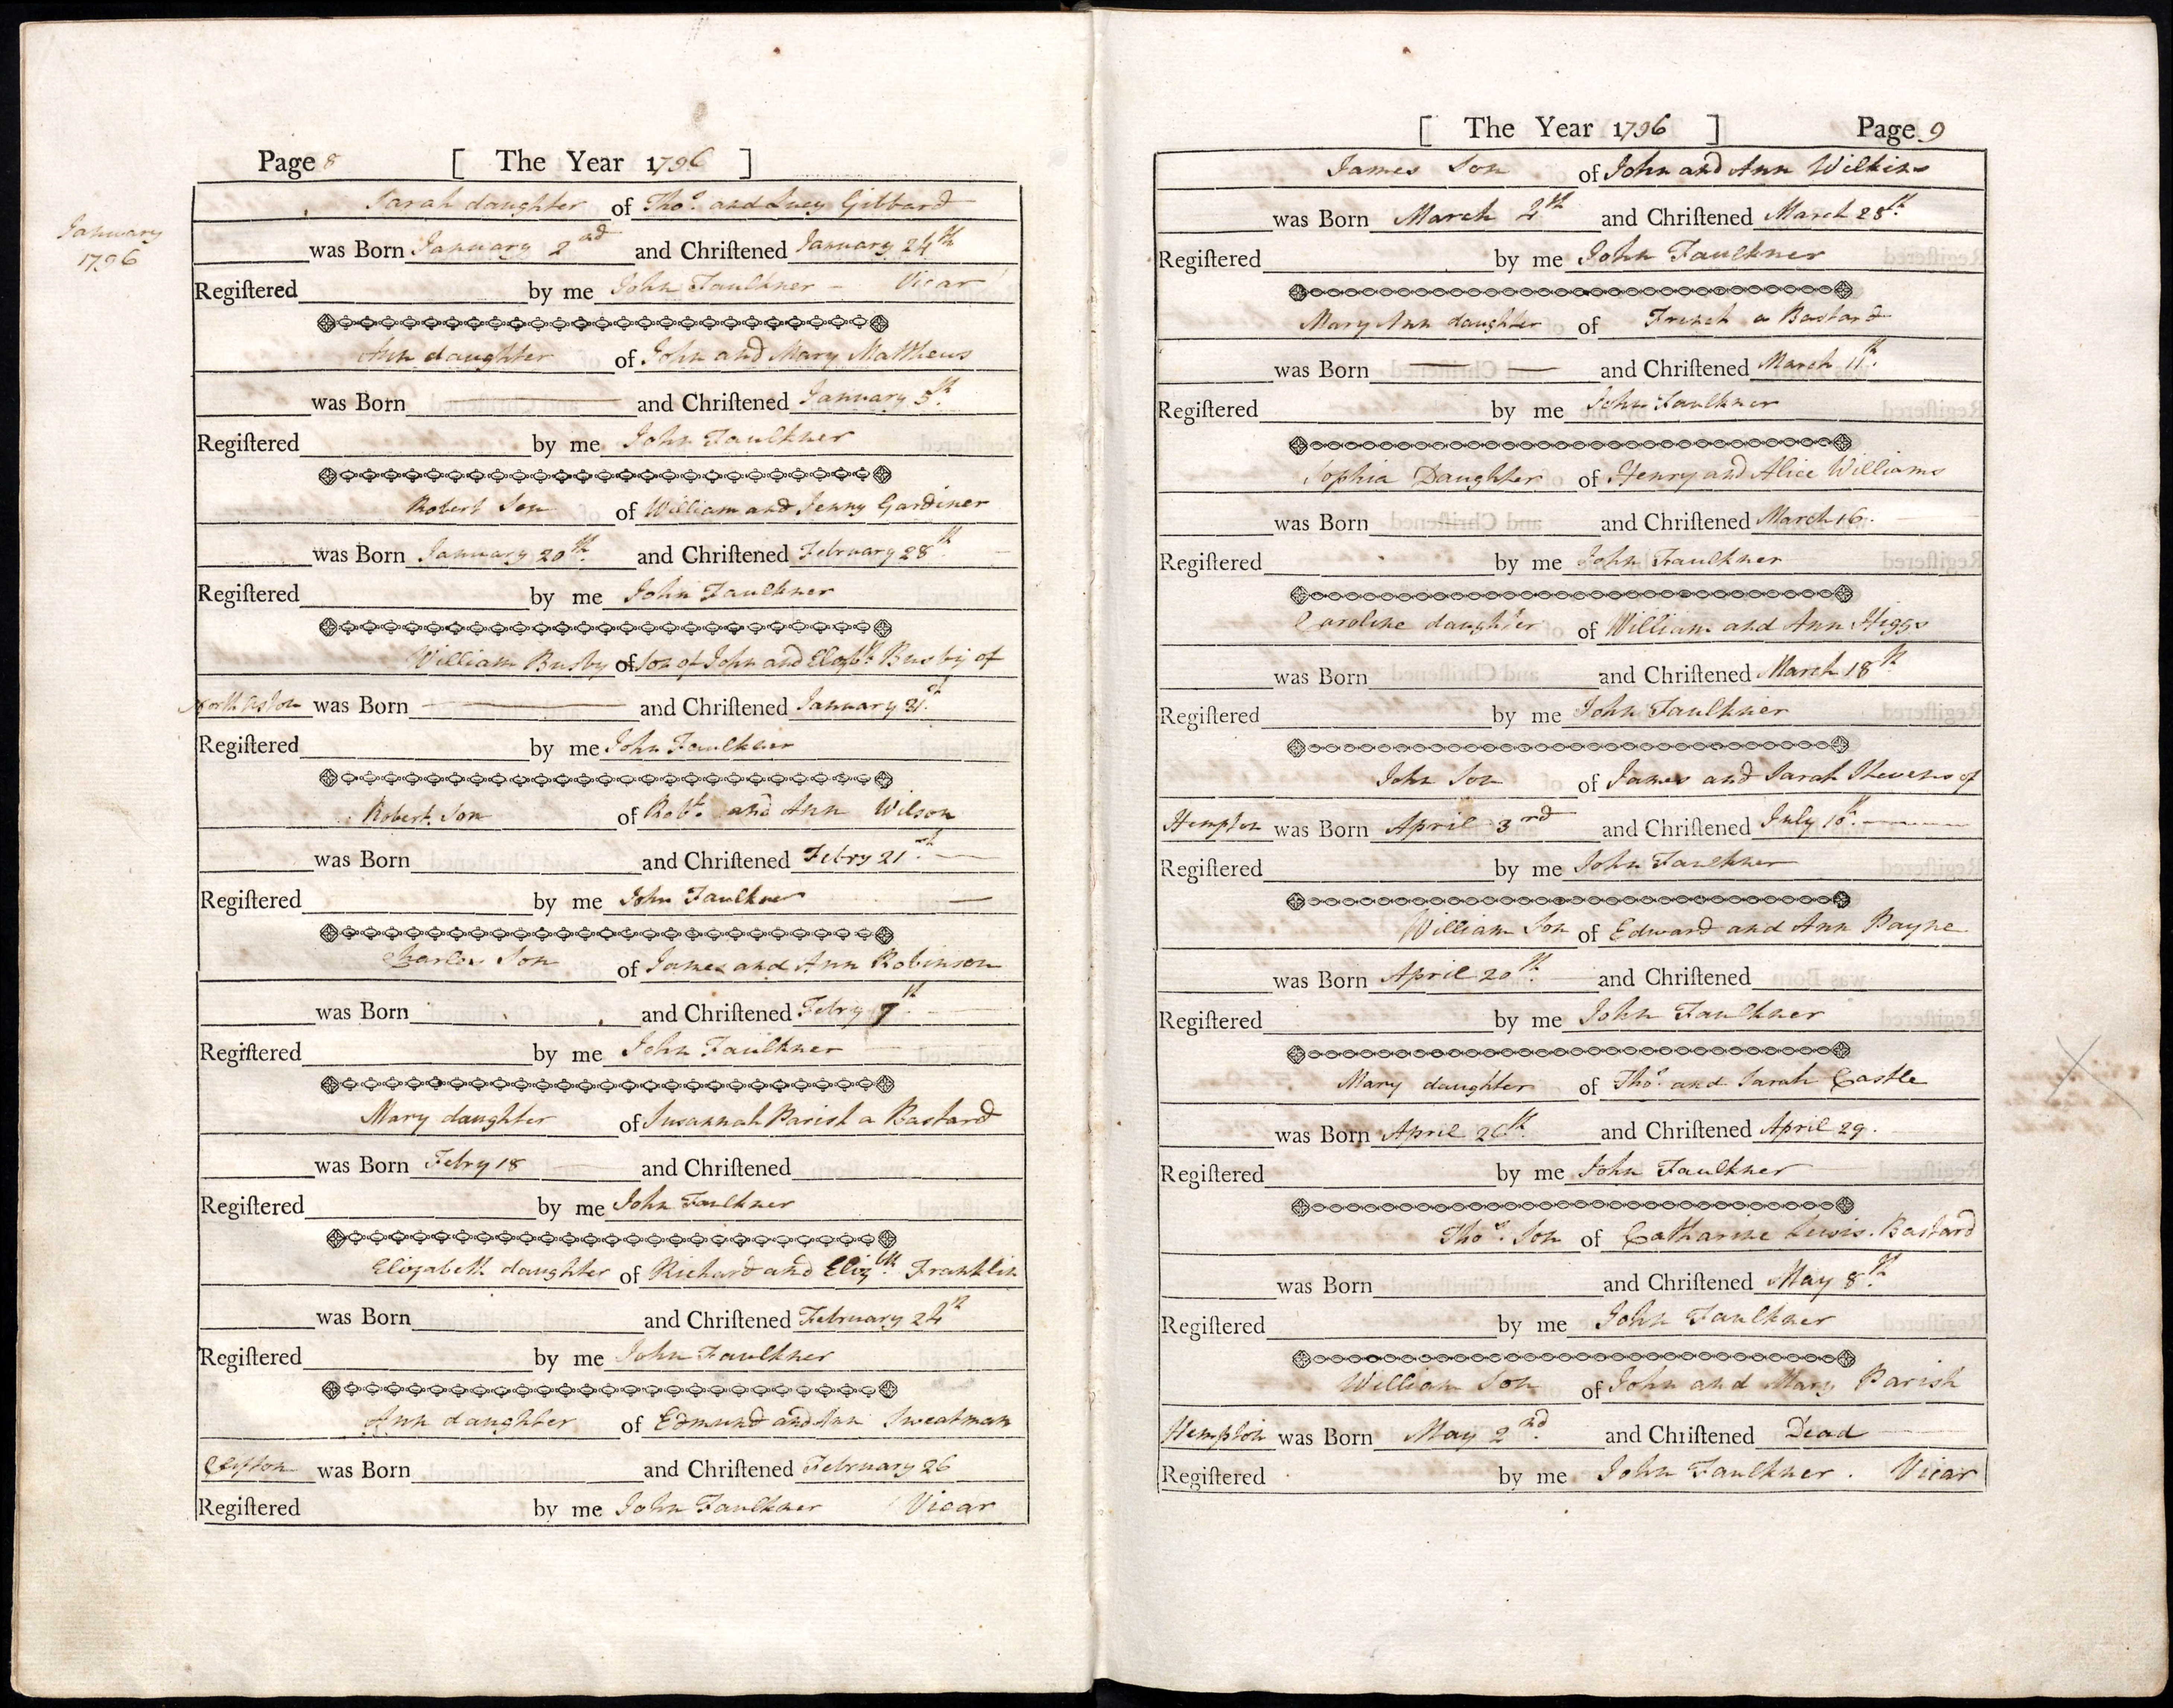 Page 8 [ The Year 1796 ]
January
1796
Sarah daughter of Thos. and Lucy Gibbard
was Born January 2nd and Chriſtened January 24th
Regiſtered by me John Faulkner - Vicar
Ann daughter of John and Mary Matthews
was Born and Chriſtened January 5th.
Regiſtered by me John Faulkner
Robert Son of William and Jenny Gardiner
was Born January 20th. and Chriſtened February 28th.
Regiſtered by me John Faulkner
William Busby of son of John and Elizbth. Busby of
North Aston was Born and Chriſtened January 31st.
Regiſtered by me John Faulkner
Robert Son of Robt. and Ann Wilson
was Born and Chriſtened Febry 21st.
Regiſtered by me John Faulkner
Charles Son of James and Ann Robinson
was Born and Chriſtened Febry 7th.
Regiſtered by me John Faulkner
Mary daughter of Susannah Parish a Bastard
was Born Febry 18 and Chriſtened
Regiſtered by me John Faulkner
Elizabeth daughter of Richard and Elizbth. Franklin
was Born and Chriſtened February 24th
Regiſtered by me John Faulkner
Ann daughter of Edmund and Ann Sweatman
Clifton was Born and Chriſtened February 26
Regiſtered by me John Faulkner Vicar
[ The Year 1796 ] Page 9
James Son of John and Ann Wilkins
was Born March 2th and Chriſtened March 28th.
Regiſtered by me John Faulkner
Mary Ann daughter of French a Bastard
was Born and Chriſtened March 11th.
Regiſtered by me John Faulkner
Sophia Daughter of Henry and Alice Williams
was Born and Chriſtened March 16.
Regiſtered by me John Faulkner
Caroline daughter of William and Ann Higgs
was Born and Chriſtened March 18th
Regiſtered by me John Faulkner
John Son of James and Sarah Stevens of
Hempton was Born April 3rd and Chriſtened July 10th.
Regiſtered by me John Faulkner
William Son of Edward and Ann Payne
was Born April 20th. and Chriſtened
Regiſtered by me John Faulkner
Mary daughter of Thos. and Sarah Castle
was Born April 26th. and Chriſtened April 29.
Regiſtered by me John Faulkner
Thos. Son of Catharine Lewis. Bastard
was Born and Chriſtened May 8th.
Regiſtered by me John Faulkner
William Son of John and Mary Parish
Hempton was Born May 2nd. and Chriſtened Dead
Regiſtered by me John Faulkner. Vicar